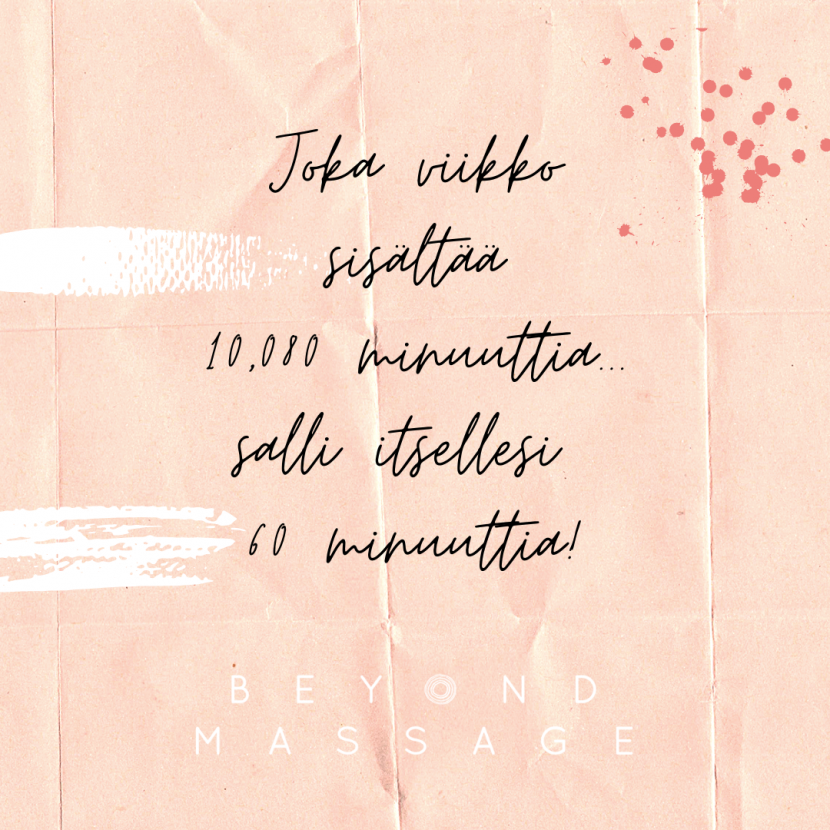 Joka viikko
sisältää
10,080 minuuttia...
salli itsellesi
60 minuuttia!
BEYOND
MASSAGE